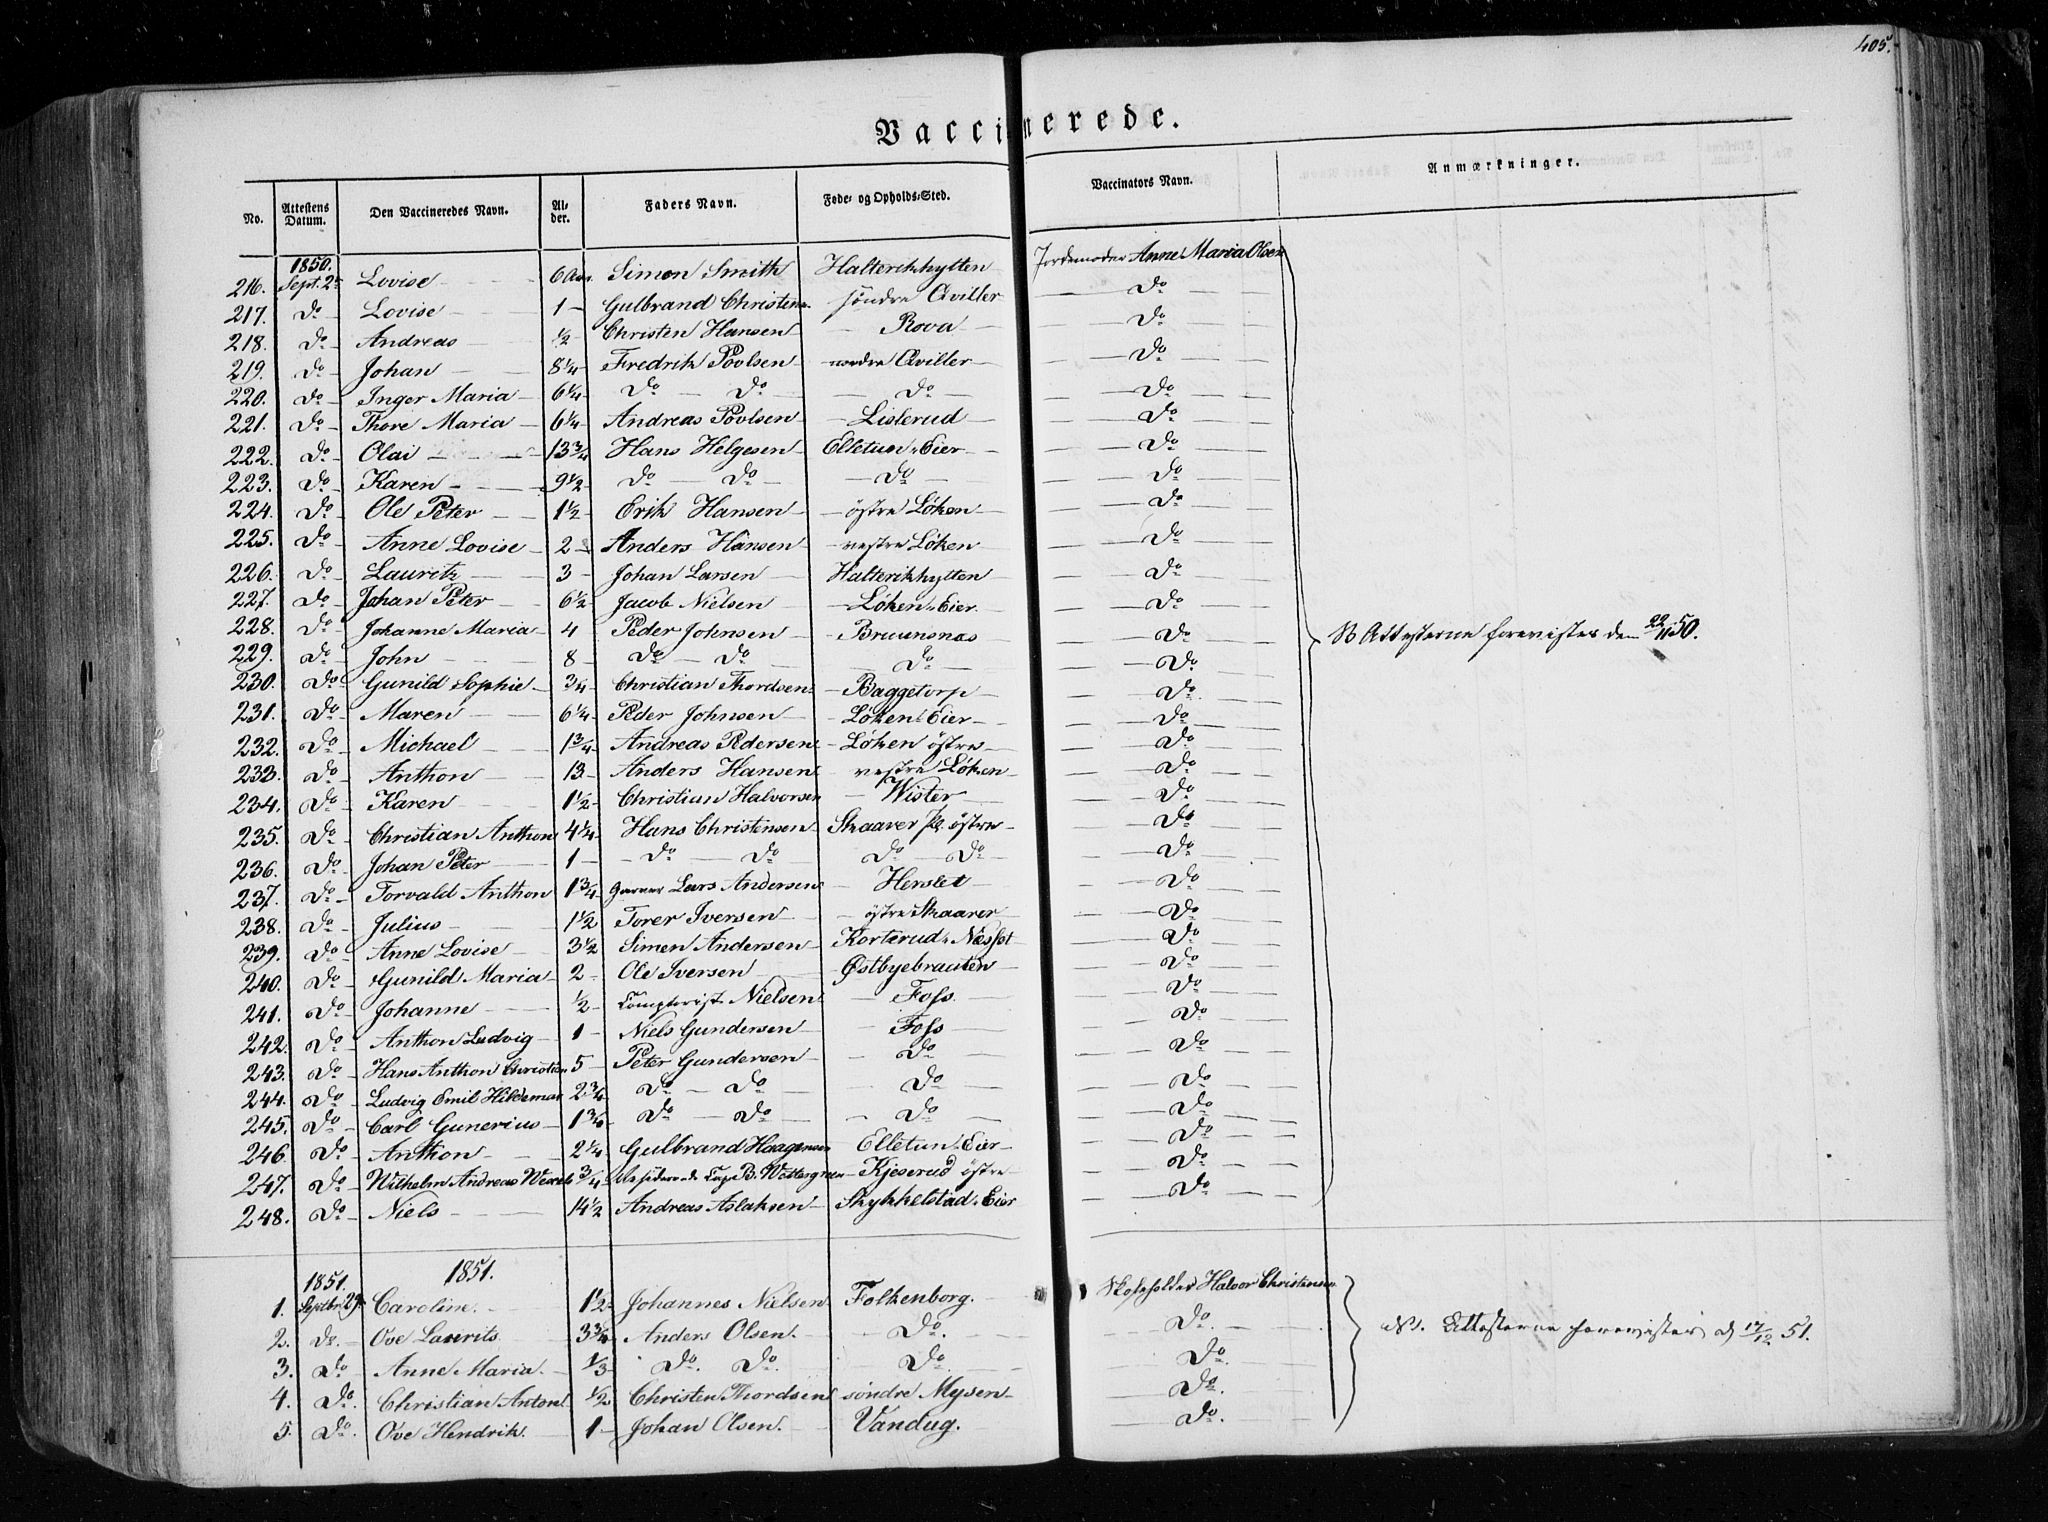 405.
Vaccinerede.
No. Attestens Datum. Den Vaccineredes Navn. Al-der. Faders Navn. Føde- og Opholds-Sted. Vaccinators Navn. Anmærkninger.
1850.
216. Sept. 2 Lovise 6 Aar Simon Smith Halterikhytten Jordemoder Anne Maria Olsen
217. Do Lovise 1 Gulbrand Christens. søndre Qviller Do
218. Do Andreas ½ Christen Hansen Rova Do
219. Do Johan 8¼ Fredrik Povlsen nordre Qviller Do
220. Do Inger Maria 6¼ Do Do Do Do
221. Do Thore Maria 6¼ Andreas Povlsen Lislerud Do
222. Do Olai 13¾ Hans Helgesen Elletun-Eier Do
223. Do Karen 9½ Do Do Do Do
224. Do Ole Peter 1½ Erik Hansen østre Løken Do
225. Do Anne Lovise 2 Anders Hansen vestre Løken Do
226. Do Lauritz 3 Johan Larsen Halterikhytten Do
227. Do Johan Peter 6½ Jacob Nielsen Løken-Eier Do
228. Do Johanne Maria 4 Peder Johnsen Bruunsnas Do Attesterne forevistes den 22/11 50.
229. Do John 8 Do Do Do Do
230. Do Gunild Sophie ¾ Christian Thordsen Baggetorp Do
231. Do Maren 6¼ Peder Johnsen Løken-Eier Do
232. Do Michael 1¾ Andreas Pedersen Løken østre Do
233. Do Anthon 13 Anders Hansen vestre Løken Do
234. Do Karen 1½ Christian Halvorsen Wister Do
235. Do Christian Anthon 4¼ Hans Christensen Skaarer Pl. østre Do
236. Do Johan Peter 1 Do Do Do Do Do
237. Do Torvald Anthon 1¾ Garver Lars Andersen Herslet Do
238. Do Julius 1½ Torer Iversen østre Skaarer Do
239. Do Anne Lovise 3½ Simen Andersen Korterud-Næsset Do
240. Do Gunild Maria 2 Ole Iversen Østbyebraaten Do
241. Do Johanne ½ Comptorist Nielsen Foss Do
242. Do Anthon Ludvig 1 Niels Gundersen Foss Do
243. Do Hans Anthon Christian 5 Peter Gundersen Do Do
244. Do Ludvig Emil Hildemar 2¾ Do Do Do Do
245. Do Carl Gunerius 1¾ Do Do Do Do
246. Do Anthon 2¼ Gulbrand Haagensen Elletun-Eier Do
247. Do Wilhelm Andreas Wexels ¾ Residerende Cap. B. Kjeserud østre Do
248. Do Niels 14½ Andreas Aslaksen Skykkelstad-Eier Do
1851. 1851.
1. Septbr. 29. Caroline. 1½ Johannes Nielsen Folkenborg. Skoleholder Halvor Christensen
2. Do. Ove Laurits. 3¾ Anders Olsen. Do. Do. Attesterne forevistes d 17/12 51.
3. Do Anne Maria. ⅓ Do. Do. Do. Do.
4. Do. Christian Anton ½ Christen Thordsen søndre Mysen Do.
5. Do. Ove Hendrik. 1 Johan Olsen. Vandug. Do.